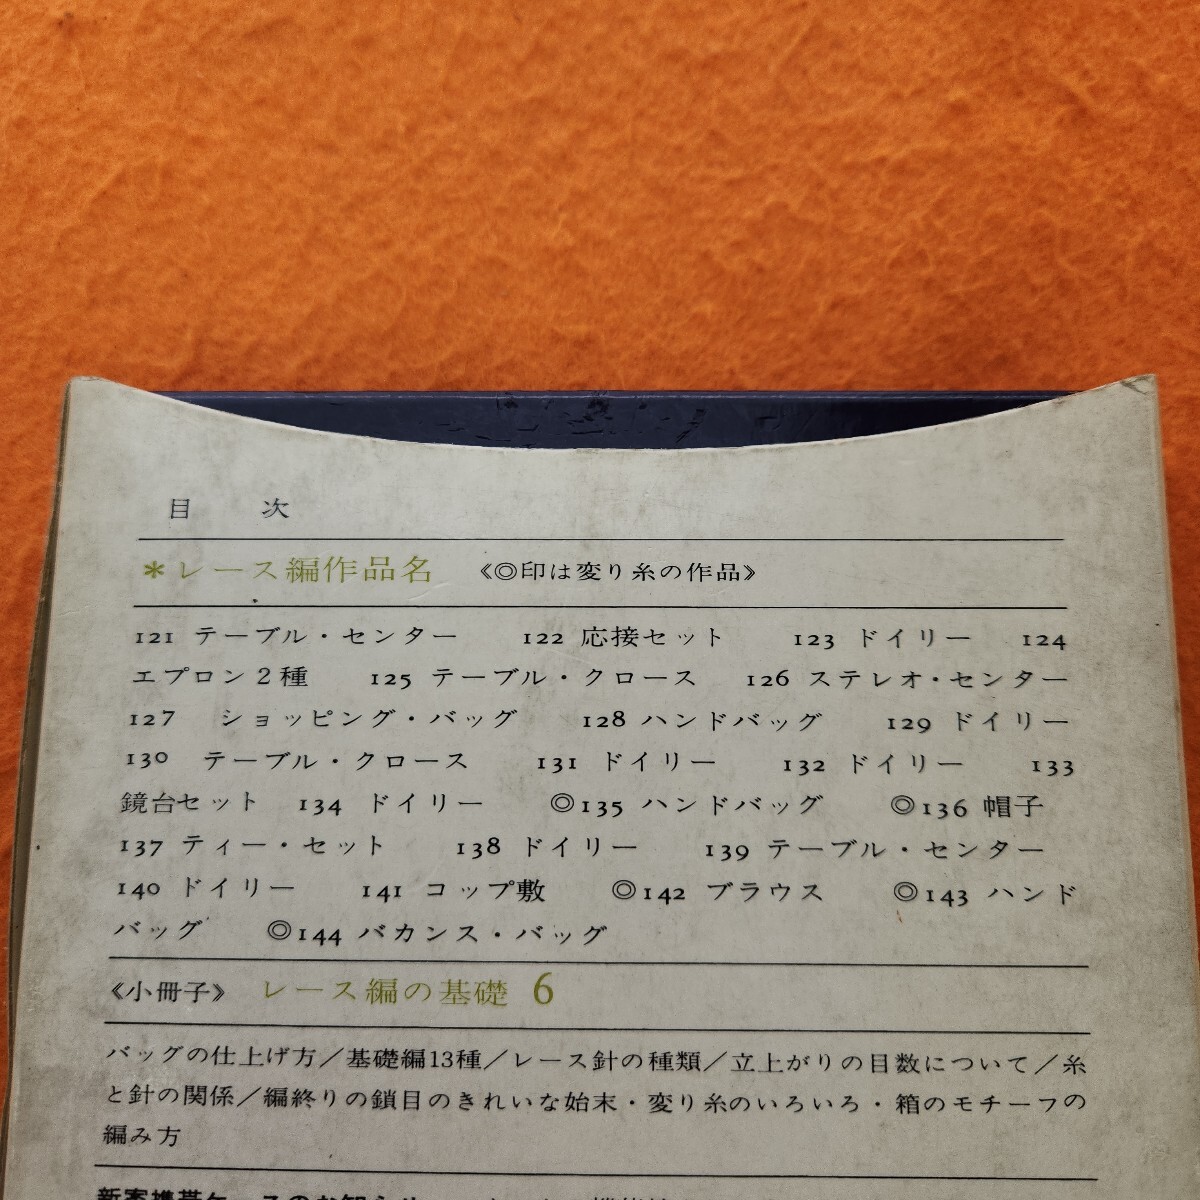 目 次
*レース編作品名 《◎印は変り糸の作品》
121 テーブル・センター 122 応接セット 123 ドイリー 124
エプロン2種 125 テーブル・クロース 126 ステレオ・センター
127 ショッピング・バッグ 128 ハンドバッグ 129 ドイリー
130 テーブル・クロース 131 ドイリー 132 ドイリー 133
鏡台セット 134 ドイリー ◎135 ハンドバッグ ◎136 帽子
137 ティー・セット 138 ドイリー 139 テーブル・センター
140 ドイリー 141 コップ敷 ◎142 ブラウス ◎143 ハンド
バッグ ◎144 バカンス・バッグ
《小冊子》 レース編の基礎 6
バッグの仕上げ方／基礎編13種／レース針の種類／立上がりの目数について／糸
と針の関係／編終りの鎖目のきれいな始末・変り糸のいろいろ・箱のモチーフの
編み方
新案携帯ケースのお知らせ